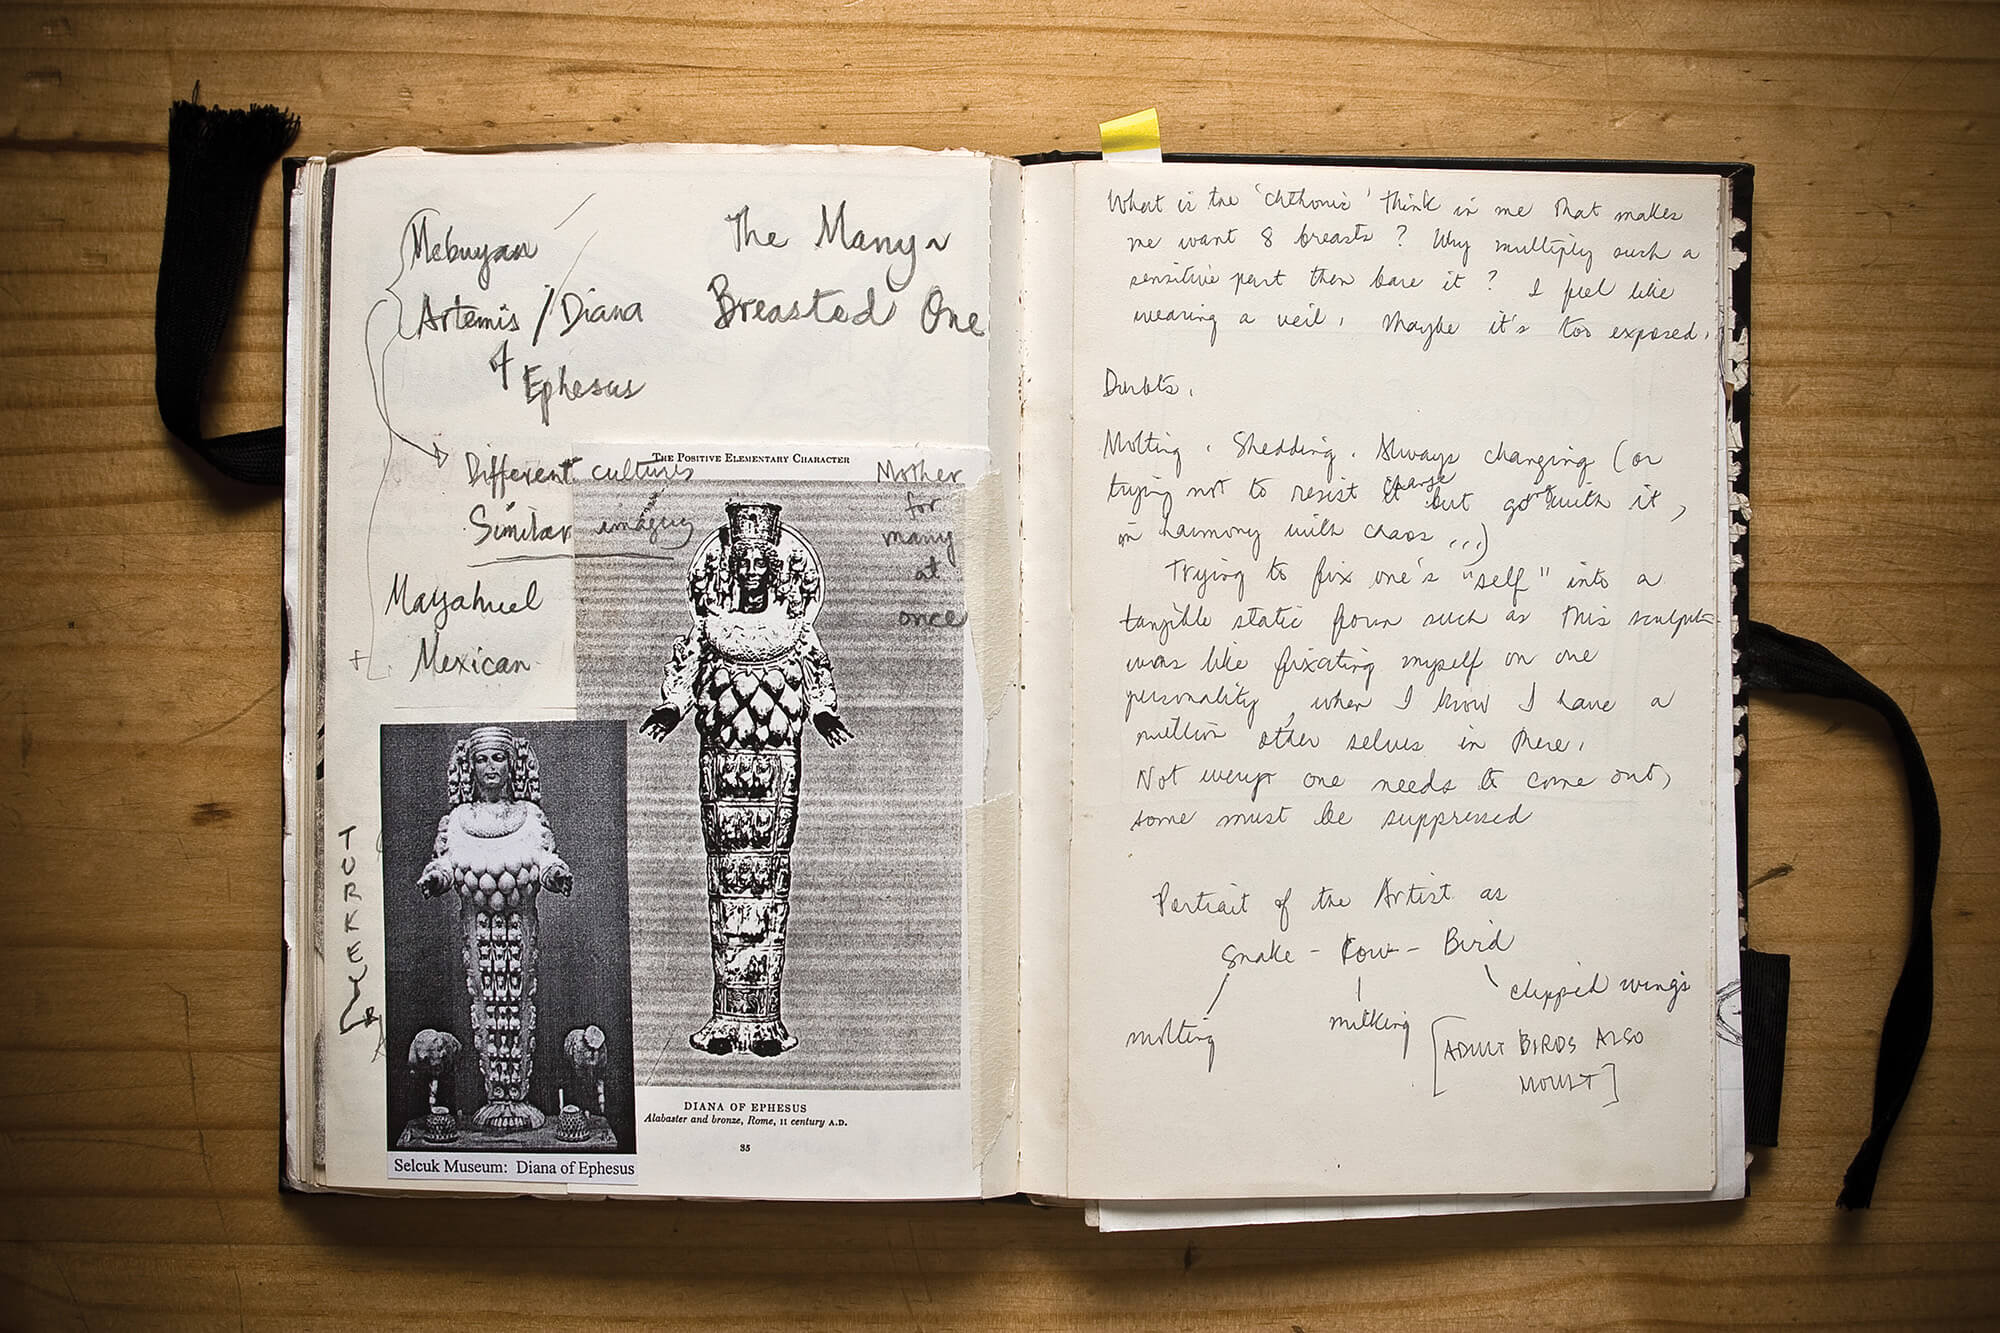 Mebuyan
Artemis / Diana
of
Ephesus
The Many~
Breasted One
Different cultures
Similar imagery
Mayahuel
Mexican
THE POSITIVE ELEMENTARY CHARACTER
Mother
for
many
at
once
TURKEY
DIANA OF EPHESUS
Alabaster and bronze, Rome, II century A.D.
35
Selcuk Museum: Diana of Ephesus
What is the 'chthonic' think in me that makes
me want 8 breasts? Why multiply such a
sensitive part then bare it? I feel like
wearing a veil. Maybe it's too exposed.
Doubts.
Molting. Shedding. Always changing (or
trying not to resist change but go with it,
in harmony with chaos ...)
Trying to fix one's "self" into a
tangible static form such as this sculpture
was like fixating myself on one
personality, when I know I have a
million other selves in there.
Not every one needs to come out,
some must be suppressed
Portrait of the Artist as
Snake - Cow - Bird
molting
milking
clipped wings
[ADULT BIRDS ALSO
MOULT]